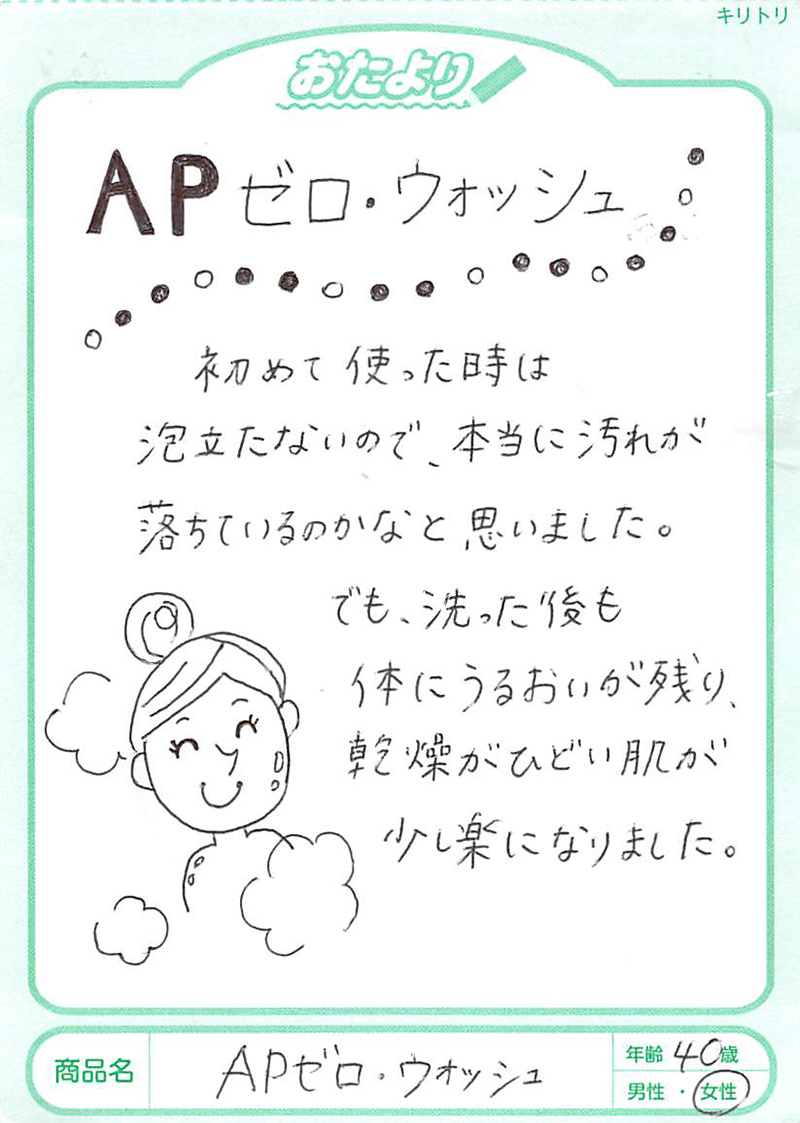 キリトリ
おたより
APゼロ・ウォッシュ
初めて使った時は
泡立たないので、本当に汚れが
落ちているのかなと思いました。
でも、洗った後も
体にうるおいが残り、
乾燥がひどい肌が
少し楽になりました。
商品名 APゼロ・ウォッシュ 年齢 40歳
男性・女性